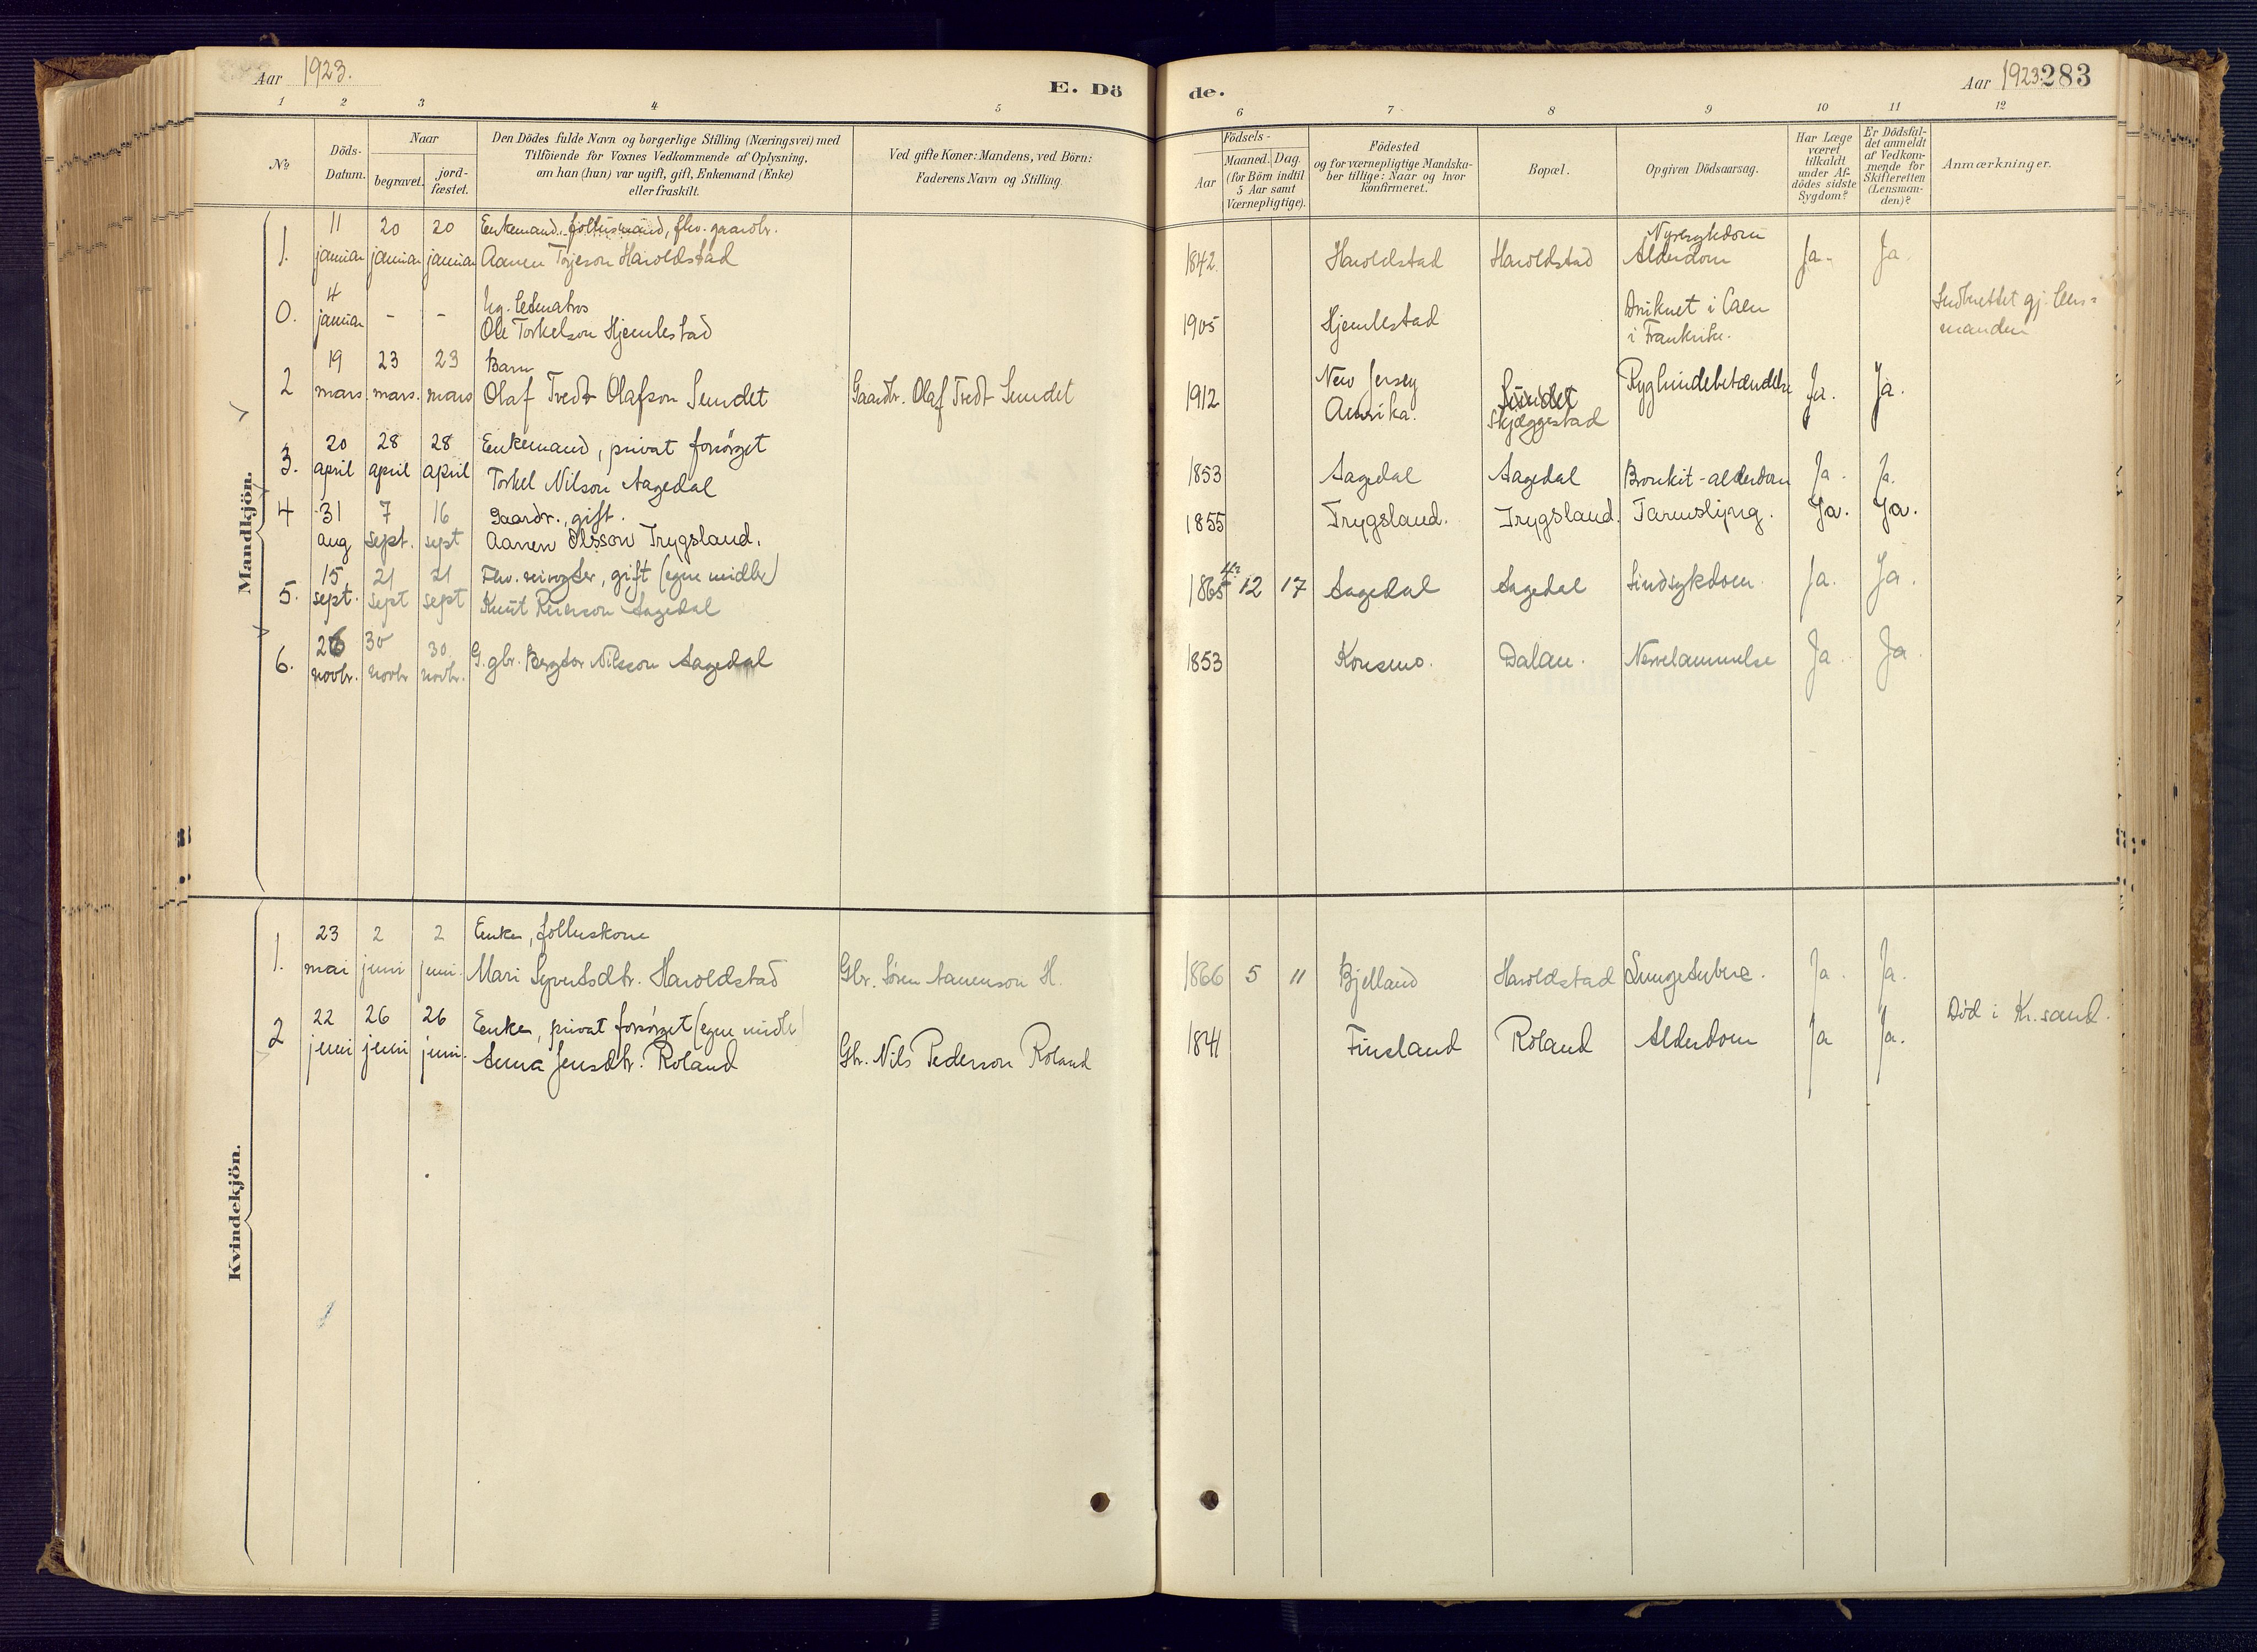 Aar 1923.
E. Döde.
Aar 1923. 283
1 2 3 4 5 6 7 8 9 10 11 12
No.
Döds-Datum.
Naar
begravet.
jord-fæstet.
Den Dödes fulde Navn og borgerlige Stilling (Næringsvei) med
Tilföiende for Voxnes Vedkommende af Oplysning,
om han (hun) var ugift, gift, Enkemand (Enke)
eller fraskilt.
Ved gifte Koner: Mandens, ved Börn:
Faderens Navn og Stilling.
Födsels-
Aar
Maaned. Dag.
(for Börn indtil
5 Aar samt
Værnepligtige).
Födested
og for værnepligtige Mandska-
ber tillige: Naar og hvor
konfirmeret.
Bopæl.
Opgiven Dödsaarsag.
Har Læge
været
tilkaldt
under Af-
dödes sidste
Sygdom?
Er Dödsfal-
det anmeldt
af Vedkom-
mende for
Skifteretten
(Lensman-
den)?
Anmærkninger.
Mandkjön.
11 20 20 Enkemand, follusmand, fhv. gaardbr. Nyresykdom
1. januar januar januar Aanen Torjeson Haroldstad 1842. Haroldstad Haroldstad Alderdom Ja. Ja.
4 Ug. letmatros Druknet i Caen Indberettet gj. lens=
0. januar - - Ole Torkelson Hjemlestad 1905 Hjemlestad i Frankrike. manden
19 23 23 Barn New Jersey
2 mars. mars. mars Olaf Tvedt Olafson Sundet Gaardbr. Olaf Tvedt Sundet 1912 Amerika. Sundet Ryghindebetændelse Ja. Ja.
Skjæggestad
20 28 28 Enkemand, privat forsörget
3. april april april Torkel Nilson Aagedal 1853 Aagedal Aagedal Bronkit - alderdom Ja. Ja.
4 31 7 16 Gaardbr., gift. 1855 Trygsland. Trygsland. Tarmslyng. Ja. Ja.
aug sept. sept Aanen Olsson Trygsland.
15 21 21 Fhv. ringer, gift (egne midler) 4?
5. sept. sept sept Knut Reierson Aagedal 1865 12 17 Aagedal Aagedal Sindsykdom Ja. Ja.
26 30 30
6. novbr. novbr novbr. G.gbr. Bergtor Nilsson Aagedal 1853 Konsmo. Dalan. Nervelammelse Ja. Ja
Kvindekjön.
23 2 2 Enke, folluskone
1. mai juni juni. Mari Syvertsdtr. Haroldstad Gbr. Sören Aanenson H. 1866 5 11 Bjelland Haroldstad Lungetuberc. Ja. Ja.
22 26 26 Enke, privat forsörget (egne midler) Död i Kr.sand.
2 juni juni juni. Anna Jensdtr. Roland Gbr. Nils Pederson Roland 1841 Finsland Roland Alderdom Ja Ja.